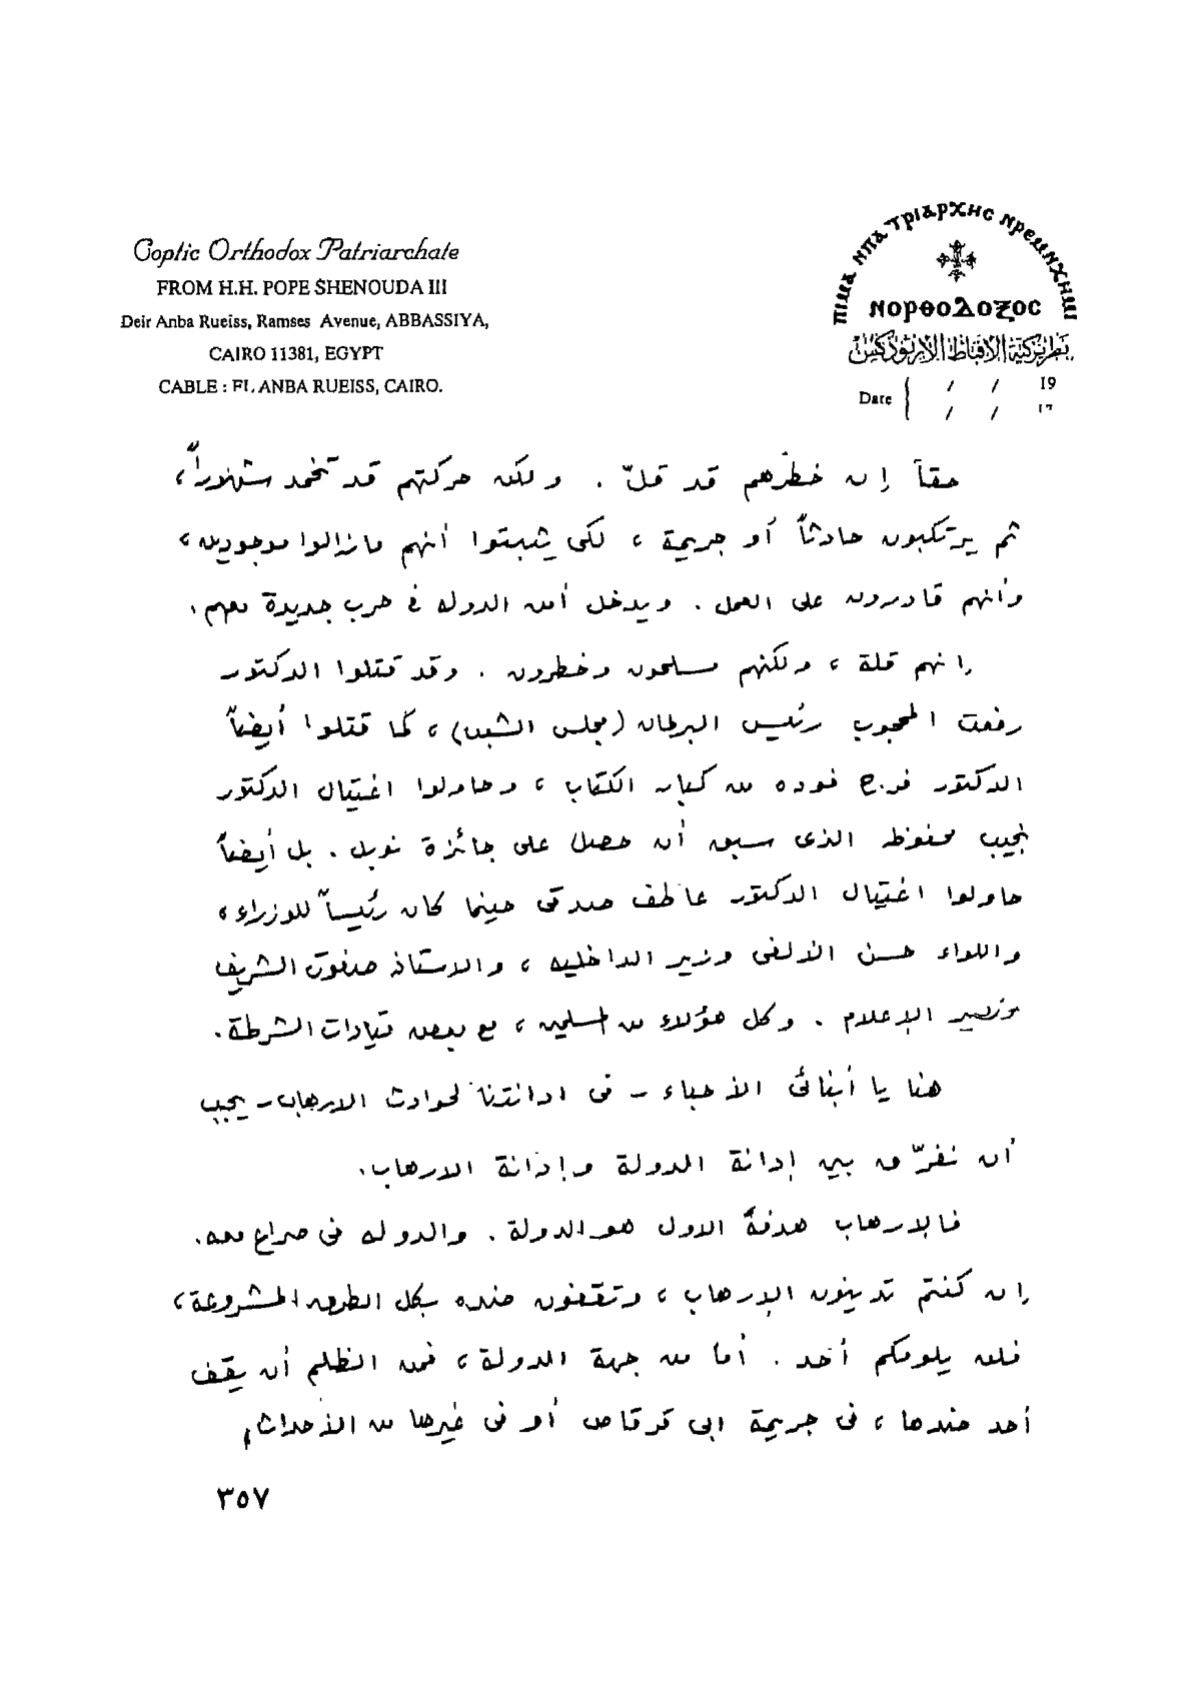 Coptic Orthodox Patriarchate
FROM H.H. POPE SHENOUDA III
Deir Anba Rueiss, Ramses Avenue, ABBASSIYA,
CAIRO 11381, EGYPT
CABLE : EL ANBA RUEISS, CAIRO.
ϯⲙⲁ ⲙⲡⲁⲧⲣⲓⲁⲣⲭⲏⲥ ⲛⲣⲉⲙⲛⲭⲏⲙⲓ
ⲛⲟⲣⲑⲟⲇⲟⲝⲟⲥ
بطريركية الأقباط الأرثوذكس
Date / / 19
/ / ١٦
حقاً إن خطرهم قد قلّ . ولكن حركتهم قد تخمد شهوراً،
ثم يرتكبون حادثاً أو جريمة ، لكى يثبتوا أنهم مازالوا موجودين ،
وأنهم قادرون على العمل . ويدخل أمن الدولة فى حرب جديدة معهم .
إنهم قلة ، ولكنهم مسلحون وخطرون . وقد قتلوا الدكتور
رفعت المحجوب رئيس البرلمان (مجلس الشعب) ، كما قتلوا أيضاً
الدكتور فرج فوده من كبار الكتاب ، وحاولوا اغتيال الدكتور
نجيب محفوظ الذى سبق أن حصل على جائزة نوبل . بل أيضاً
حاولوا اغتيال الدكتور عاطف صدقى حينما كان رئيساً للوزراء ،
واللواء حسن الألفى وزير الداخلية ، والاستاذ صفوت الشريف
وزير الإعلام . وكل هؤلاء من المسلمين ، مع بعض قيادات الشرطة .
هنا يا أبنائى الأحباء - فى ادانتنا لحوادث الارهاب - يجب
أن نفرّق بين إدانة الدولة وإدانة الارهاب .
فالإرهاب هدفهُ الاول هو الدولة . والدولة فى صراع معه .
إن كنتم تدينون الإرهاب ، وتقفون ضده بكل الطرق المشروعة ،
فلن يلومكم أحد . أما من جهة الدولة ، فمن الظلم أن يقف
أحد ضدها ، فى جريمة ابى قرقاص أو فى غيرها من الأحداث ،
٣٥٧